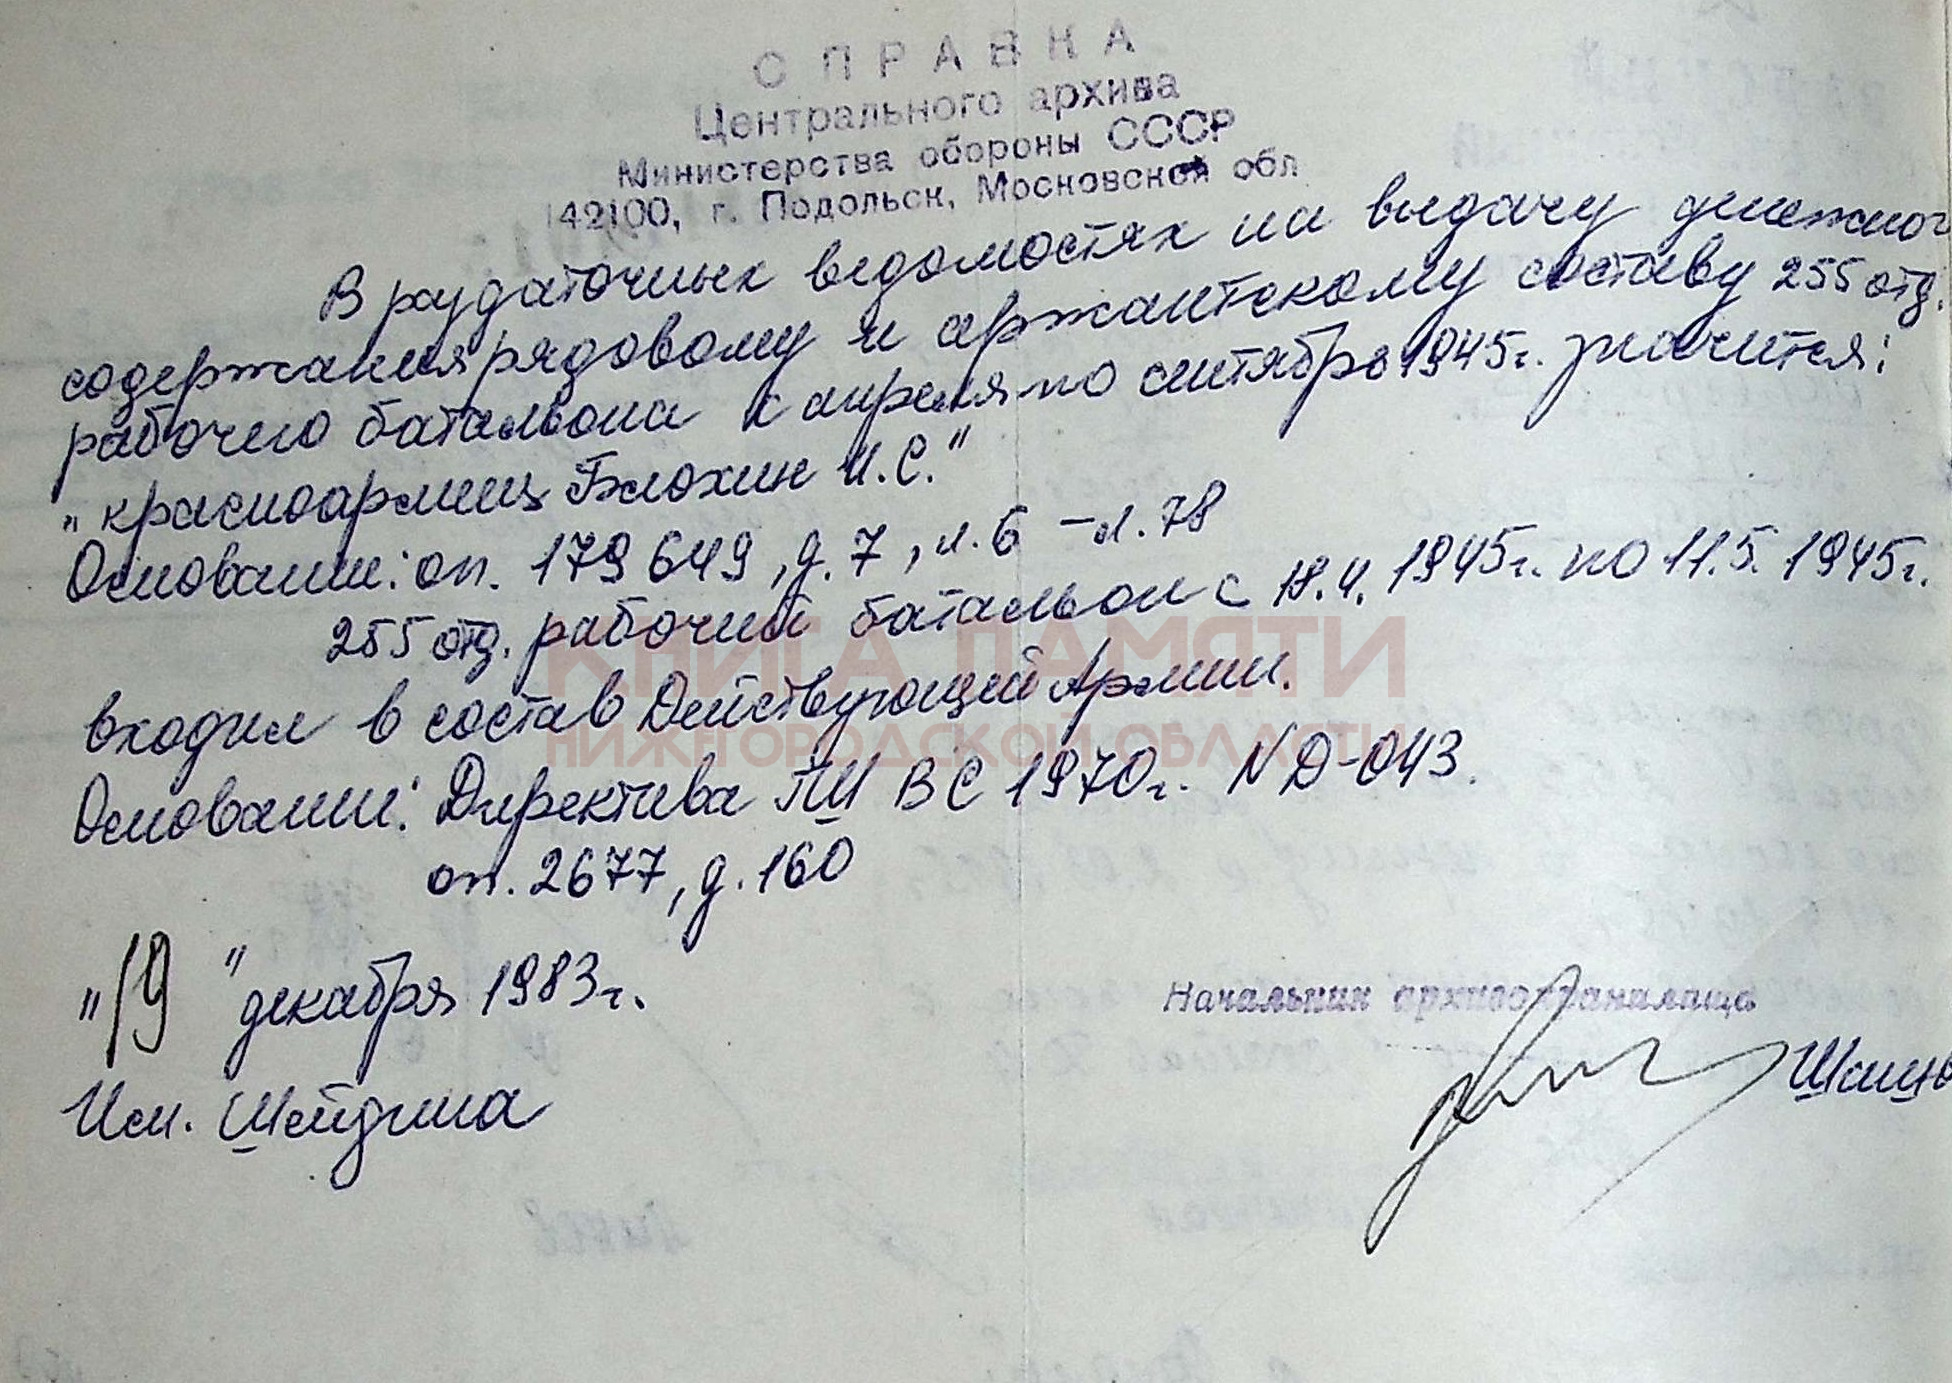 СПРАВКА
Центрального архива
Министерства обороны СССР
142100, г. Подольск, Московской обл
В раздаточных ведомостях на выдачу денежног
содержания рядовому и сержантскому составу 255 отд.
рабочего батальона с апреля по сентябрь 1945г. значится:
"красноармеец Блохин И.С."
Основание: оп. 179649, д. 7, л. 6 - л. 78
255 отд. рабочий батальон с 18.4.1945г. по 11.5.1945г.
КНИГА ПАМЯТИ
входил в состав Действующей Армии.
НИЖГОРОДСКОЙ ОБЛАСТИ
Основание: Директива ГШ ВС 1970г. N Д-043.
оп. 2677, д. 160
"19" декабря 1983г.
Начальник архивохранилища
Исп. Шейдина